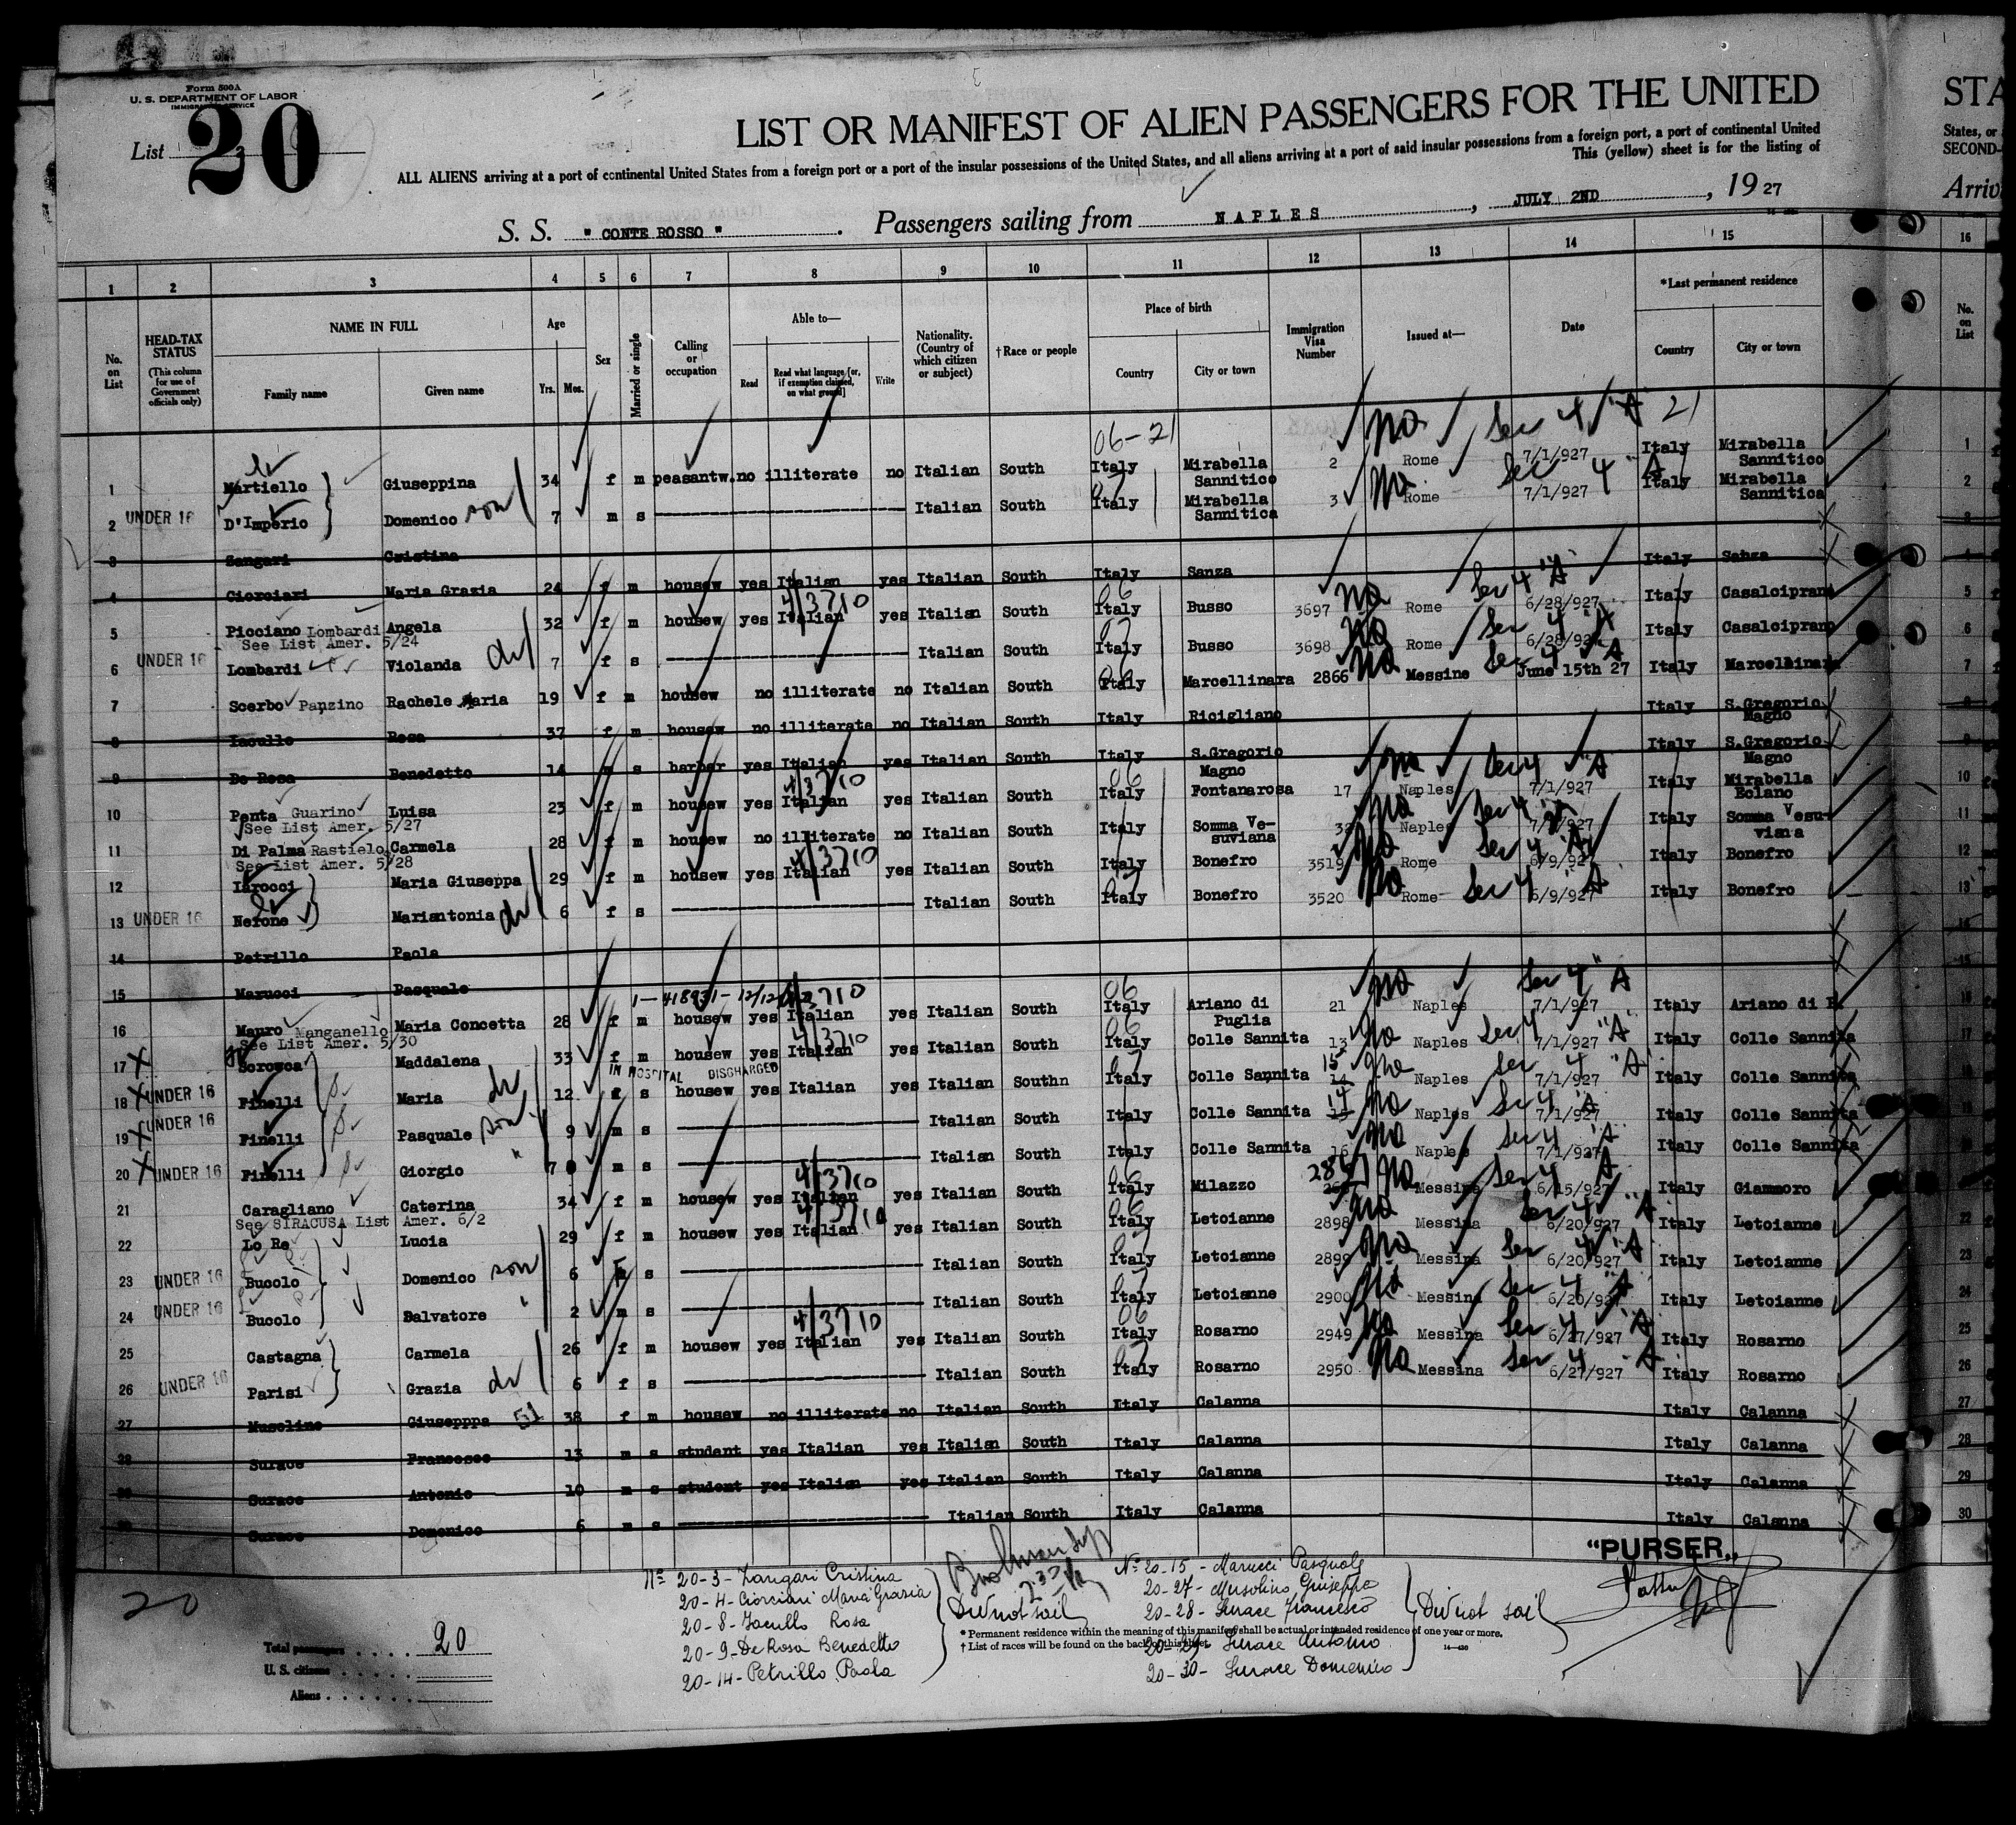 Form 500A
U. S. DEPARTMENT OF LABOR
IMMIGRATION SERVICE
List 20
LIST OR MANIFEST OF ALIEN PASSENGERS FOR THE UNITED
ALL ALIENS arriving at a port of continental United States from a foreign port or a port of the insular possessions of the United States, and all aliens arriving at a port of said insular possessions from a foreign port, a port of continental United
This (yellow) sheet is for the listing of
S. S. "CONTE ROSSO". Passengers sailing from NAPLES, JULY 2ND, 1927
STA
States, or
SECOND-
Arriv
1 2 3 4 5 6 7 8 9 10 11 12 13 14 15 16
No. on List
HEAD-TAX STATUS (This column for use of Government officials only)
NAME IN FULL Family name Given name
Age Yrs. Mos.
Sex
Married or single
Calling or occupation
Able to— Read Read what language [or, if exemption claimed, on what ground] Write
Nationality. (Country of which citizen or subject)
†Race or people
Place of birth Country City or town
Immigration Visa Number
Issued at—
Date
*Last permanent residence Country City or town
No. on List
06-21 no Sec 4 "A" 21
1 Martiello Giuseppina 34 f m peasantw. no illiterate no Italian South Italy Mirabella Sannitico 2 Rome 7/1/927 Italy Mirabella Sannitico
2 UNDER 16 D'Imperio Domenico son 7 m s Italian South Italy Mirabella Sannitica 3 no Rome Sec 4 "A" 7/1/927 Italy Mirabella Sannitica
3 Sangari Cristina
4 Ciorciari Maria Grazia 24 f m housew yes Italian yes Italian South Italy Sanza Italy Sanza
5 Picciano Lombardi Angela 32 f m housew yes Italian yes Italian South Italy Busso 3697 no Rome Sec 4 "A" 6/28/927 Italy Casalciprano
See List Amer. 5/24
6 UNDER 16 Lombardi Violanda 7 f s Italian South Italy Busso 3698 no Rome Sec 4 "A" 6/28/927 Italy Casalciprano
7 Scerbo Panzino Rachele Maria 19 f m housew no illiterate no Italian South Italy Marcellinara 2866 no Messine Sec 4 "A" June 15th 27 Italy Marcellinara
8 Iacullo Rosa 37 f m housew no illiterate no Italian South Italy Ricigliano Italy S.Gregorio Magno
9 De Rosa Benedetto 14 m s barber yes Italian yes Italian South Italy S.Gregorio Magno Italy S.Gregorio Magno
10 Penta Guarino Luisa 23 f m housew yes Italian yes Italian South Italy Fontanarosa 17 no Naples Sec 4 "A" 7/1/927 Italy Mirabella Eclano
See List Amer. 5/27
11 Di Palma Rastielo Carmela 28 f m housew no illiterate no Italian South Italy Somma Vesuviana 32 no Naples Sec 4 "A" 7/1/927 Italy Somma Vesuviana
See List Amer. 5/28
12 Iarocci Maria Giuseppa 29 f m housew yes Italian yes Italian South Italy Bonefro 3519 no Rome Sec 4 "A" 6/9/927 Italy Bonefro
13 UNDER 16 Nerone Mariantonia 6 f s Italian South Italy Bonefro 3520 no Rome Sec 4 "A" 6/9/927 Italy Bonefro
14 Petrillo Paola
15 Marucci Pasquale
16 Mauro Manganello Maria Concetta 28 f m housew yes Italian yes Italian South Italy Ariano di Puglia 21 no Naples Sec 4 "A" 7/1/927 Italy Ariano di P.
See List Amer. 5/30
17 X Sorowca Maddalena 33 f m housew yes Italian yes Italian South Italy Colle Sannita 13 no Naples Sec 4 "A" 7/1/927 Italy Colle Sannita
IN HOSPITAL DISCHARGED
18 X UNDER 16 Finelli Maria 12 f s housew yes Italian yes Italian Southn Italy Colle Sannita 15 14 no Naples Sec 4 "A" 7/1/927 Italy Colle Sannita
19 X UNDER 16 Finelli Pasquale son 9 m s Italian South Italy Colle Sannita 14 15 no Naples Sec 4 "A" 7/1/927 Italy Colle Sannita
20 X UNDER 16 Finelli Giorgio " 7 m s Italian South Italy Colle Sannita 16 no Naples Sec 4 "A" 7/1/927 Italy Colle Sannita
21 Caragliano Caterina 34 f m housew yes Italian yes Italian South Italy Milazzo no Messina Sec 4 "A" 6/15/927 Italy Giammoro
See SIRACUSA List Amer. 6/2
22 Lo Re Lucia 29 f m housew yes Italian yes Italian South Italy Letoianne 2898 no Messina Sec 4 "A" 6/20/927 Italy Letoianne
23 UNDER 16 Bucolo Domenico son 6 m s Italian South Italy Letoianne 2899 no Messina Sec 4 "A" 6/20/927 Italy Letoianne
24 UNDER 16 Bucolo Salvatore " 2 m s Italian South Italy Letoianne 2900 no Messina Sec 4 "A" 6/20/927 Italy Letoianne
25 Castagna Carmela 26 f m housew yes Italian yes Italian South Italy Rosarno 2949 no Messina Sec 4 "A" 6/27/927 Italy Rosarno
26 UNDER 16 Parisi Grazia 6 f s Italian South Italy Rosarno 2950 no Messina Sec 4 "A" 6/27/927 Italy Rosarno
27 Musolino Giuseppa 51 38 f m housew no illiterate no Italian South Italy Calanna Italy Calanna
28 Surace Francesco 13 m s student yes Italian yes Italian South Italy Calanna Italy Calanna
29 Surace Antonio 10 m s student yes Italian yes Italian South Italy Calanna Italy Calanna
30 Surace Domenico 6 m s Italian South Italy Calanna Italy Calanna
"PURSER"
20
Total passengers 20
U. S. citizens
Aliens
Nº 20-3- Zangari Cristina
20-4- Ciorciari Maria Grazia
20-8- Iacullo Rosa
20-9- De Rosa Benedetto
20-14- Petrillo Paola
Did not sail
Nº 20-15- Marucci Pasquale
20-27- Musolino Giuseppa
20-28- Surace Francesco
20-29- Surace Antonio
20-30- Surace Domenico
Did not sail
* Permanent residence within the meaning of this manifest shall be actual or intended residence of one year or more.
† List of races will be found on the back of this sheet.